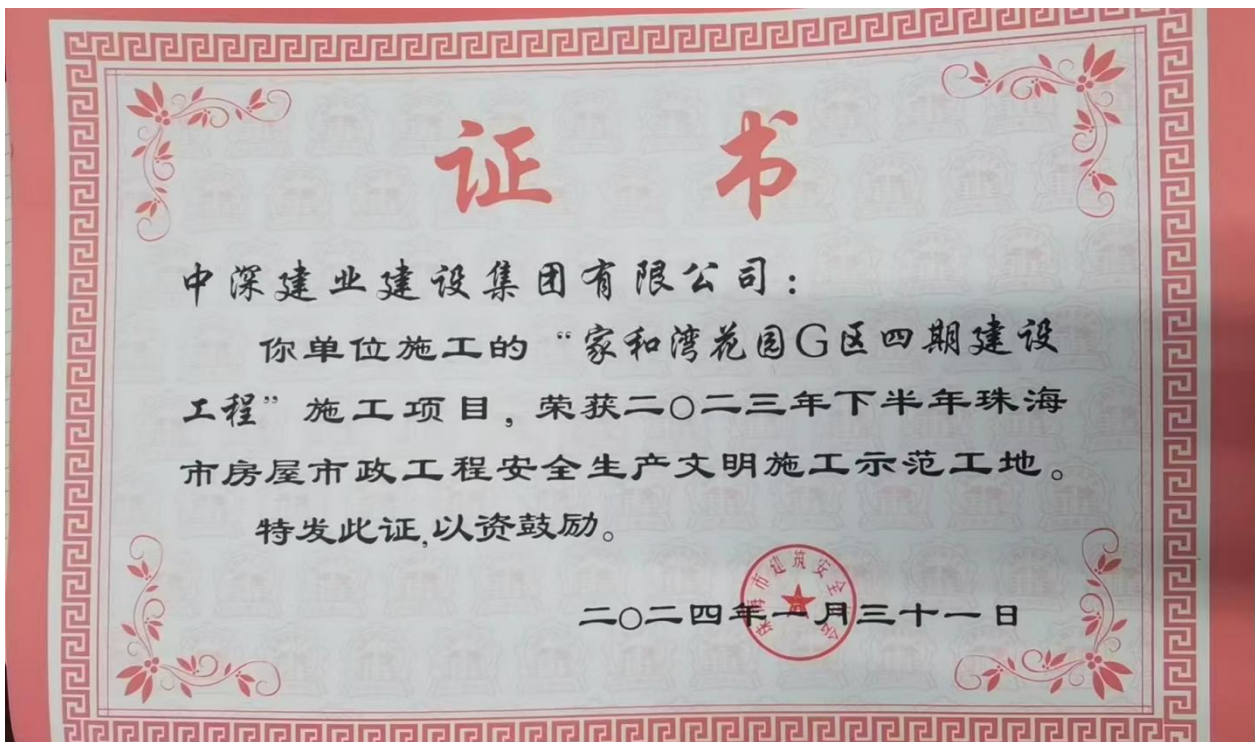 证书
中深建业建设集团有限公司：
你单位施工的“家和湾花园G区四期建设
工程”施工项目，荣获二〇二三年下半年珠海
市房屋市政工程安全生产文明施工示范工地。
特发此证，以资鼓励。
珠海市建筑安全
二〇二四年一月三十一日